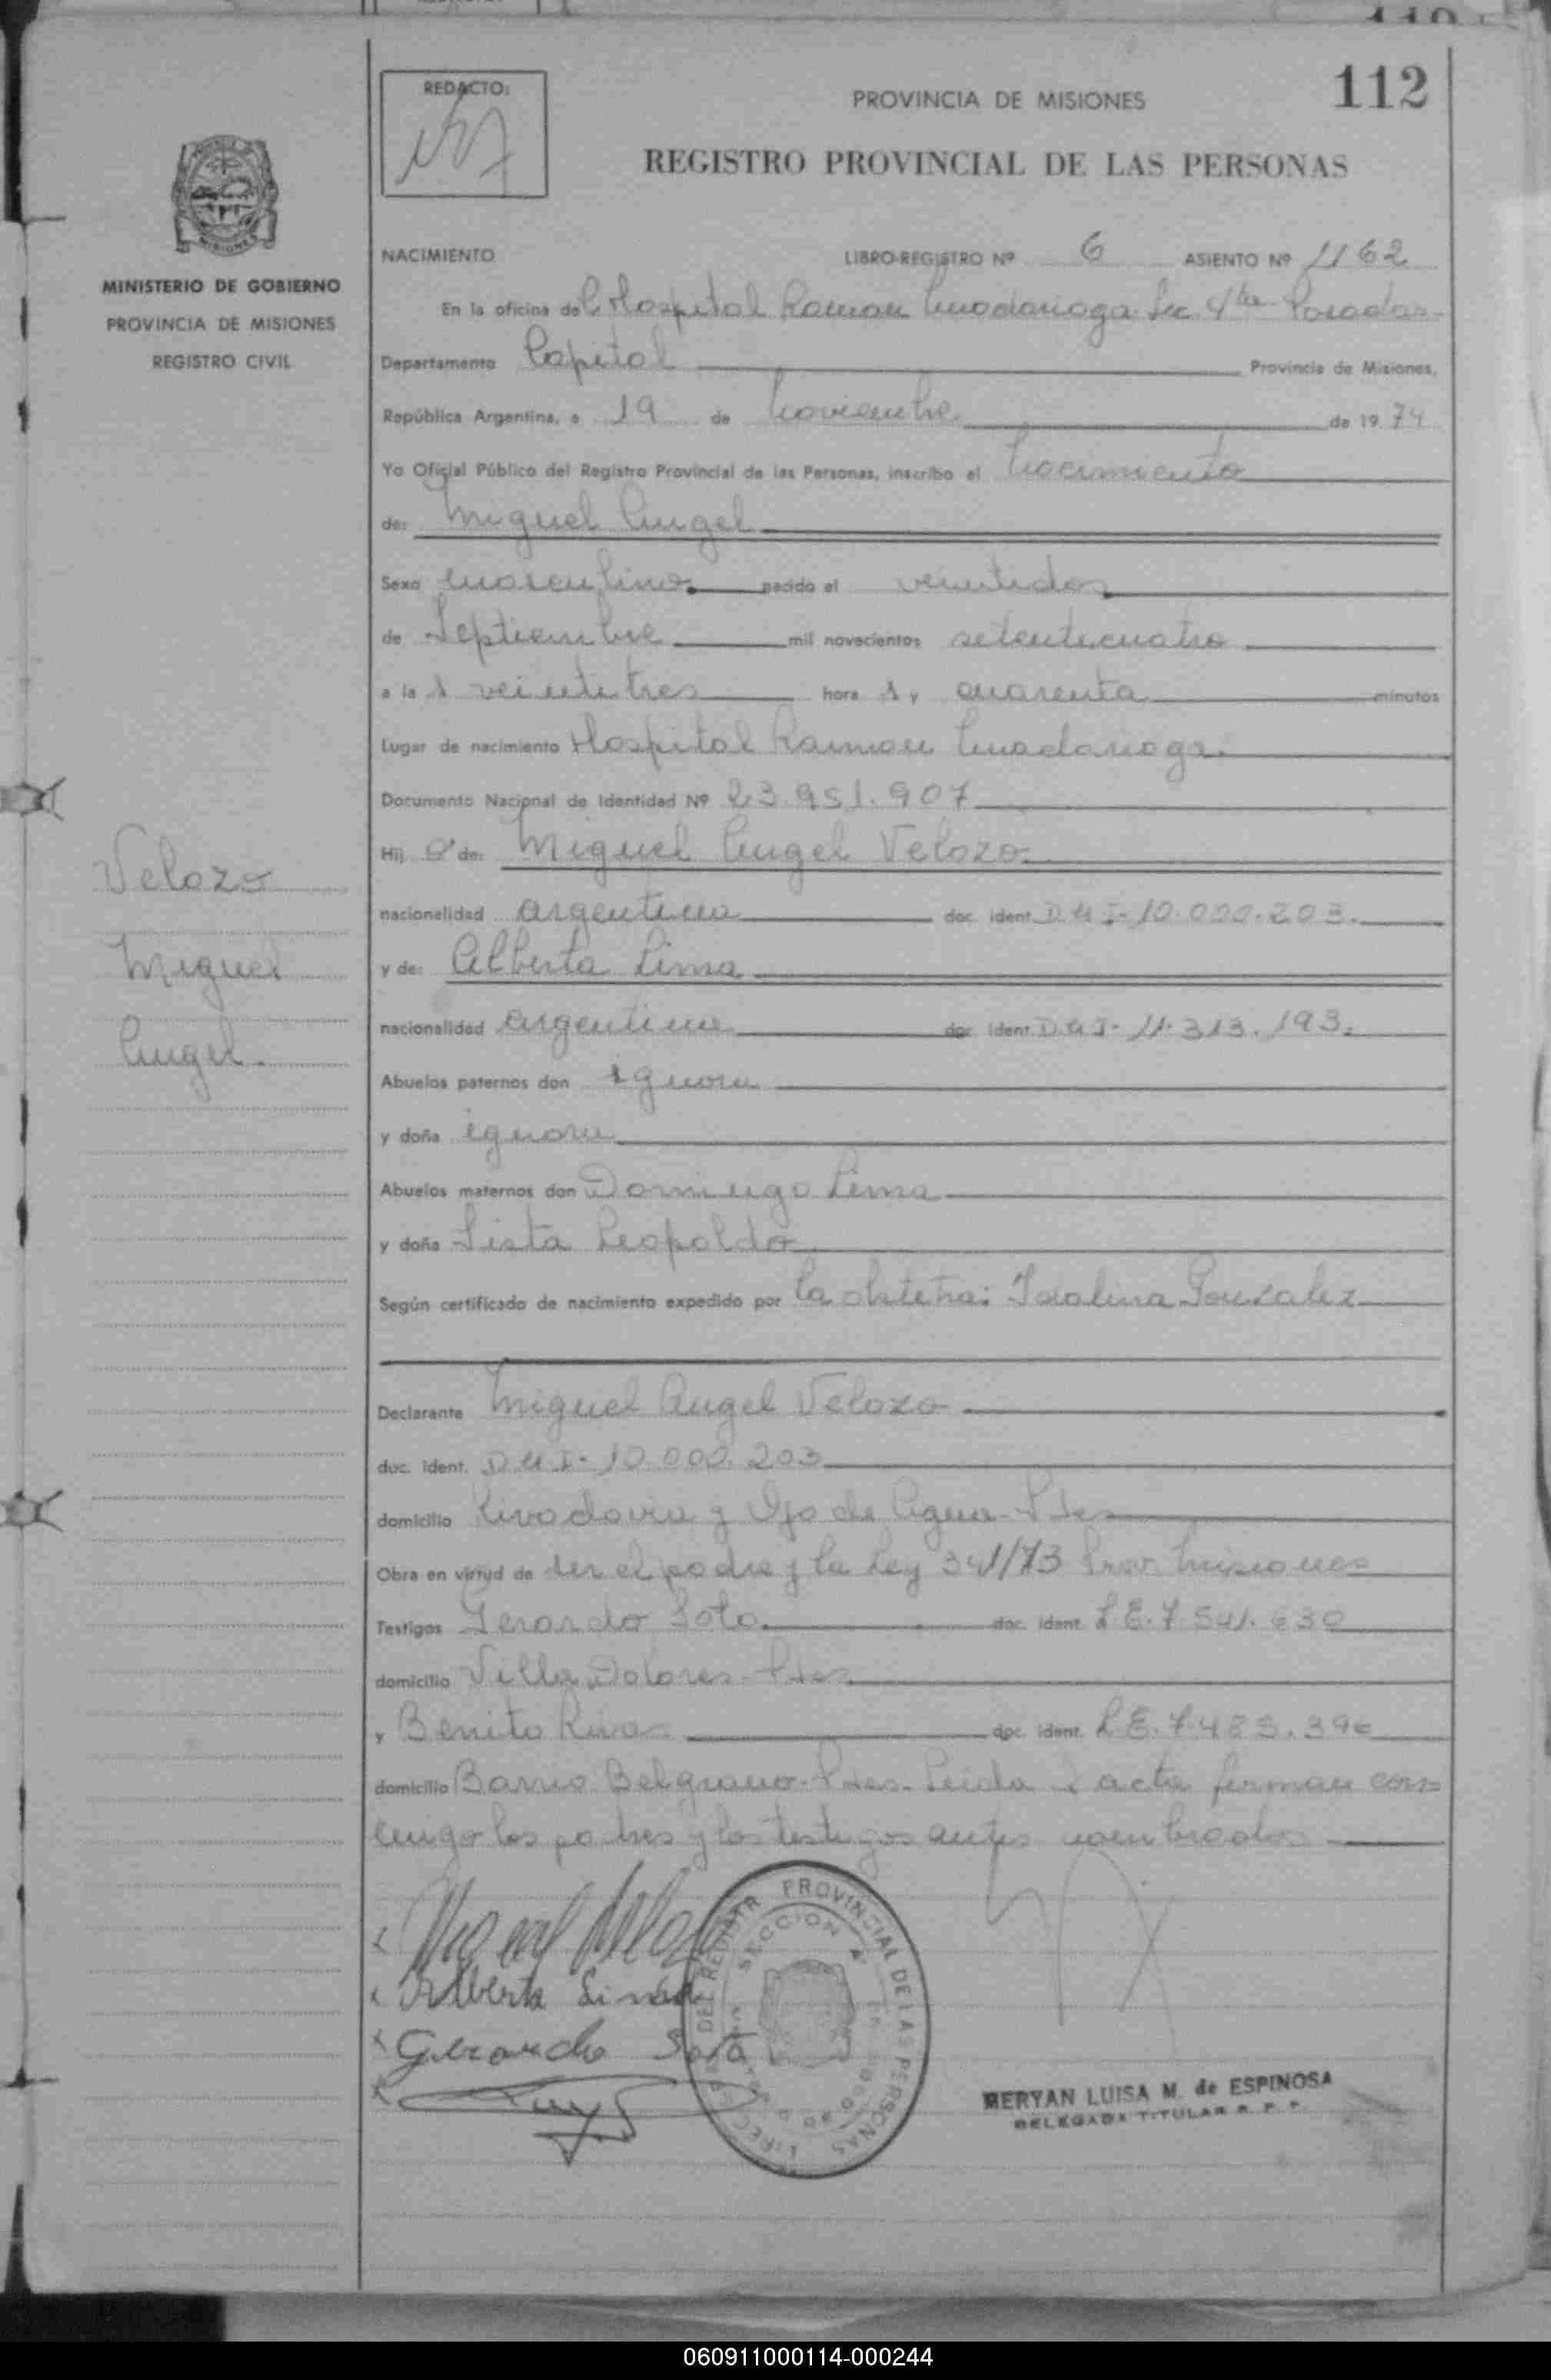 REDACTO:
PROVINCIA DE MISIONES
112
REGISTRO PROVINCIAL DE LAS PERSONAS
MISIONES
MINISTERIO DE GOBIERNO
PROVINCIA DE MISIONES
REGISTRO CIVIL
NACIMIENTO LIBRO-REGISTRO Nº 6 ASIENTO Nº 1162
En la oficina del Hospital Ramon Madariaga Sec 4ta Posadas
Departamento Capital Provincia de Misiones,
República Argentina, a 19 de Noviembre de 1974
Yo Oficial Público del Registro Provincial de las Personas, inscribo el Nacimiento
de: Miguel Angel
Sexo masculino nacido el veintidos
de Septiembre mil novecientos setenticuatro
a las veintitres horas y cuarenta minutos
Lugar de nacimiento Hospital Ramon Madariaga
Documento Nacional de Identidad Nº 23.951.907
Hijo de: Miguel Angel Velozo
nacionalidad argentina doc. ident. DNI-10.000.203.
y de: Alberta Lima
nacionalidad argentina doc. ident. DNI-11.313.193.
Abuelos paternos don ignora
y doña ignora
Abuelos maternos don Domingo Lima
y doña Sista Leopoldo
Según certificado de nacimiento expedido por la obstetra: Idalina Gonzalez
Declarante Miguel Angel Velozo
doc. ident. DNI-10.000.203
domicilio Rivadavia y Ojo de Agua-Pdas
Obra en virtud de ser el padre y la Ley 341/73 Prov. Misiones
Testigos Gerardo Soto doc. ident. LE.7.541.630
domicilio Villa Dolores-Pdas
y Benito Rivas doc. ident. LE.7.483.396
domicilio Barrio Belgrano-Pdas. Leida el acta firman con-
migo los padres y los testigos antes nombrados
Velozo
Miguel
Angel.
Miguel Velozo
Alberta Lima
Gerardo Soto
DEL REGISTR PROVINCIAL DE LAS PERSONAS
SECCION 4
MERYAN LUISA M. de ESPINOSA
DELEGADA TITULAR R. P. P.
060911000114-000244